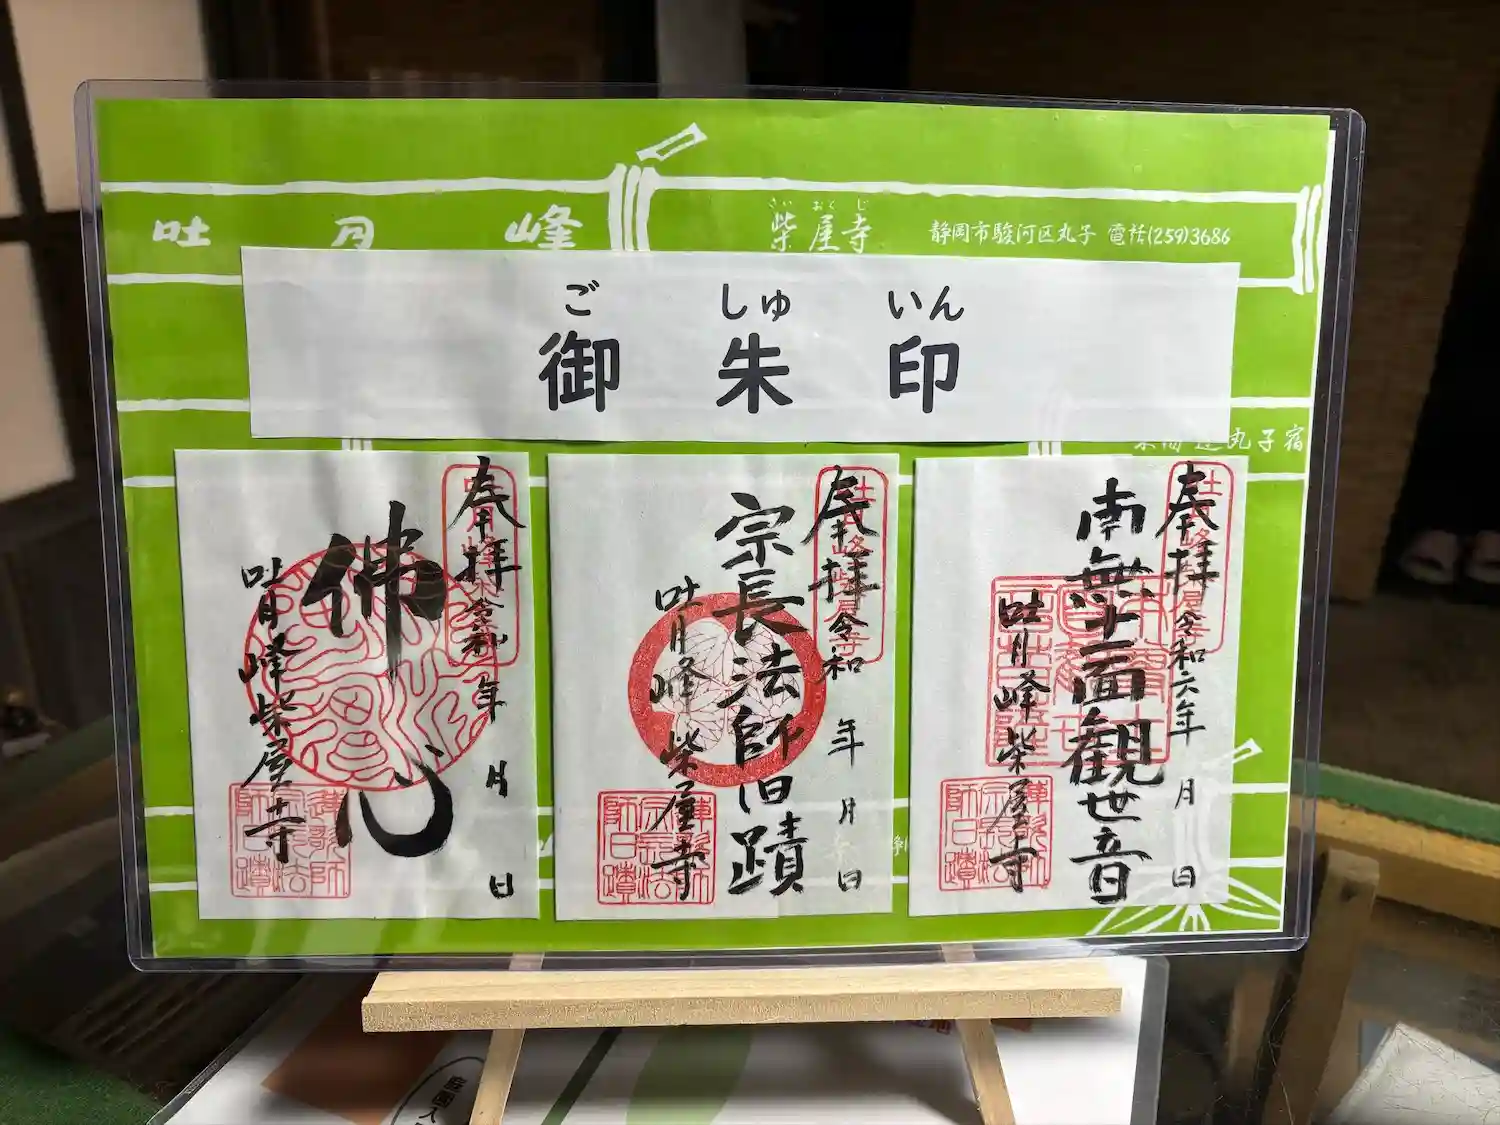 吐 月 峰
さい おく じ
柴屋寺
静岡市駿河区丸子 電話(259)3686
ご しゅ いん
御 朱 印
丸子宿
奉拝
令和 年 月 日
佛心
吐月峰 柴屋寺
奉拝
令和 年 月 日
宗長法師旧蹟
吐月峰 柴屋寺
奉拝
令和六年 月 日
南無十一面観世音
吐月峰 柴屋寺